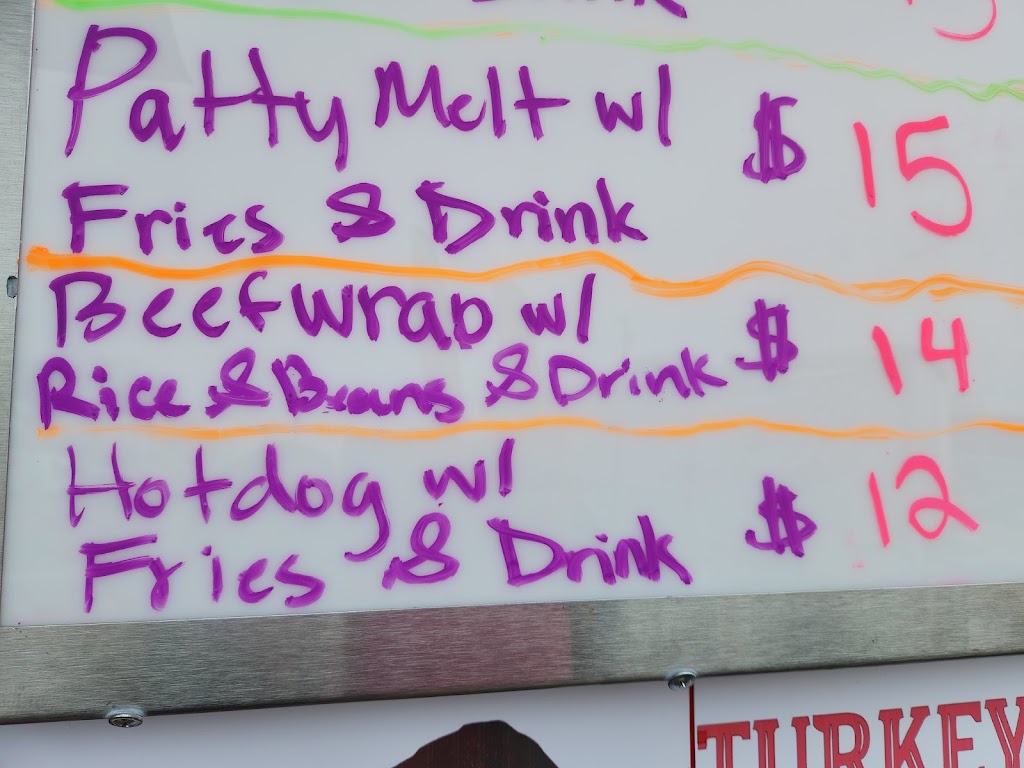 Patty Melt w/
$ 15
Fries & Drink
Beef wrap w/
$ 14
Rice & Beans & Drink
Hotdog w/
$ 12
Fries & Drink
TURKEY